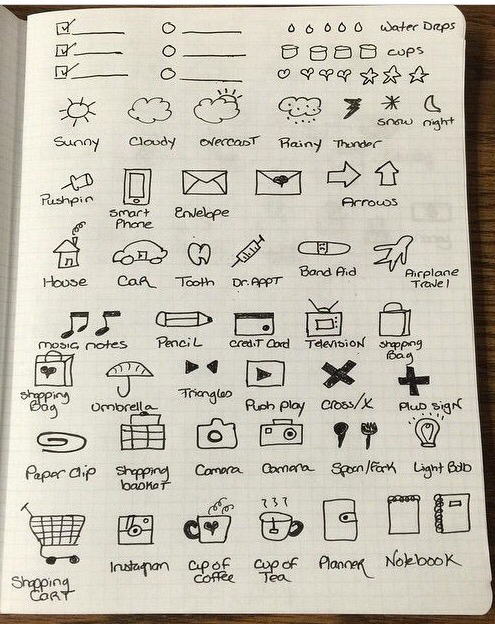 Water Drops
cups
Sunny Cloudy overcast Rainy Thunder snow night
Pushpin Smart Phone Envelope Arrows
House Car Tooth Dr. APPT Band Aid Airplane Travel
music notes Pencil credit Card Television shopping Bag
Shopping Bag Umbrella Triangles Push play Cross/X Plus sign
Paper Clip Shopping basket Camera Camera Spoon/Fork Light Bulb
Shopping Cart Instagram Cup of Coffee Cup of Tea Planner Notebook